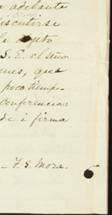 adelante
discutirse
S. E. el Señor
nes, que
poco tiempo
conferencias
de i firma
F. S. Mora.